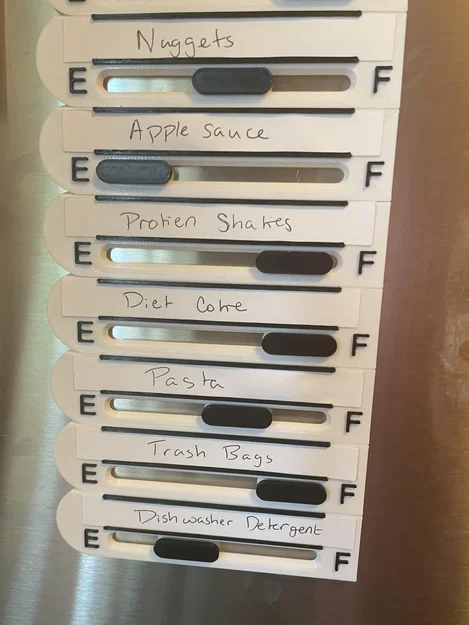 Nuggets
E F
Apple sauce
E F
Protien Shakes
E F
Diet Coke
E F
Pasta
E F
Trash Bags
E F
Dishwasher Detergent
E F